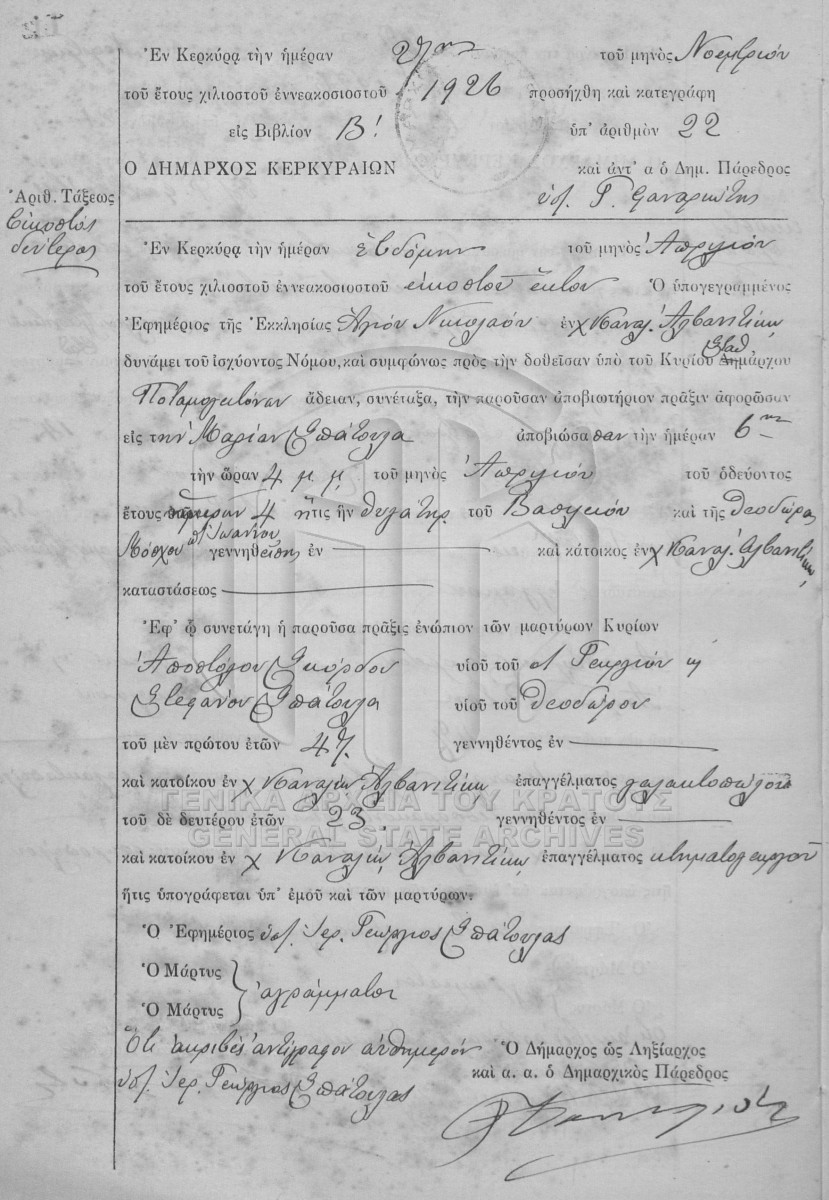 Ἐν Κερκύρᾳ τὴν ἡμέραν τοῦ μηνὸς Νοεμβρίου
τοῦ ἔτους χιλιοστοῦ ἐννεακοσιοστοῦ 1926 προσήχθη καὶ κατεγράφη
εἰς Βιβλίον Β! ὑπ' ἀριθμὸν 22
Ο ΔΗΜΑΡΧΟΣ ΚΕΡΚΥΡΑΙΩΝ καὶ ἀντ' α ὁ Δημ. Πάρεδρος
ὑπ. Γ.
Ἀριθ. Τάξεως
Εἰκοστὸς
δεύτερος
Ἐν Κερκύρᾳ τὴν ἡμέραν ἑβδόμην τοῦ μηνὸς Ἀπριλίου
τοῦ ἔτους χιλιοστοῦ ἐννεακοσιοστοῦ εἰκοστοῦ ἕκτου Ὁ ὑπογεγραμμένος
Ἐφημέριος τῆς Ἐκκλησίας Ἁγίου Νικολάου ἐν χ Καναλ. Ἀλβανιτίκων
δυνάμει τοῦ ἰσχύοντος Νόμου, καὶ συμφώνως πρὸς τὴν δοθεῖσαν ὑπὸ τοῦ Κυρίου Σταθμάρχου
Ποταμογειτόνων ἄδειαν, συνέταξα, τὴν παροῦσαν ἀποβιωτήριον πρᾶξιν ἀφορῶσαν
εἰς τὴν Μαρίαν Σπάτουλα ἀποβιώσασαν τὴν ἡμέραν 6ην
τὴν ὥραν 4 μ μ τοῦ μηνὸς Ἀπριλίου τοῦ ὁδεύοντος
ἔτους 4 ἥτις ἦν θυγάτηρ τοῦ Βασιλείου καὶ τῆς Θεοδώρας
Μόσχου Ἰωάννου γεννηθείσης ἐν καὶ κάτοικος ἐν χ Καναλ. Ἀλβανιτίκων
καταστάσεως
Ἐφ' ᾧ συνετάγη ἡ παροῦσα πρᾶξις ἐνώπιον τῶν μαρτύρων Κυρίων
Ἀποστόλου Σκόρδου υἱοῦ τοῦ Γεωργίου κ
Στεφάνου Σπάτουλα υἱοῦ τοῦ Θεοδώρου
τοῦ μὲν πρώτου ἐτῶν 47 γεννηθέντος ἐν
καὶ κατοίκου ἐν χ Καναλίων Ἀλβανιτίκων ἐπαγγέλματος γαλακτοπώλου
ΓΕΝΙΚΑ ΑΡΧΕΙΑ ΤΟΥ ΚΡΑΤΟΥΣ
τοῦ δὲ δευτέρου ἐτῶν 23 γεννηθέντος ἐν
GENERAL STATE ARCHIVES
καὶ κατοίκου ἐν χ Καναλίων Ἀλβανιτίκων ἐπαγγέλματος κτηματογεωργοῦ
ἥτις ὑπογράφεται ὑπ' ἐμοῦ καὶ τῶν μαρτύρων.
Ὁ Ἐφημέριος ὑπ. Ἱερ. Γεώργιος Σπάτουλας
Ὁ Μάρτυς
ἀγράμματοι
Ὁ Μάρτυς
Ὅτι ἀκριβὲς ἀντίγραφον αὐθημερόν Ὁ Δήμαρχος ὡς Ληξίαρχος
καὶ α. α. ὁ Δημαρχικὸς Πάρεδρος
ὑπ. Ἱερ. Γεώργιος Σπάτουλας